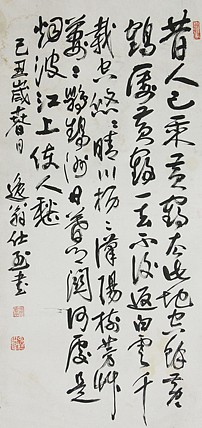 昔人已乘黃鶴去此地空餘黃
鶴樓黃鶴一去不復返白雲千
載空悠々晴川歷々漢陽樹芳艸
萋々鸚鵡洲日暮鄉關何處是
烟波江上使人愁
己丑歲春日 逸翁仕 書